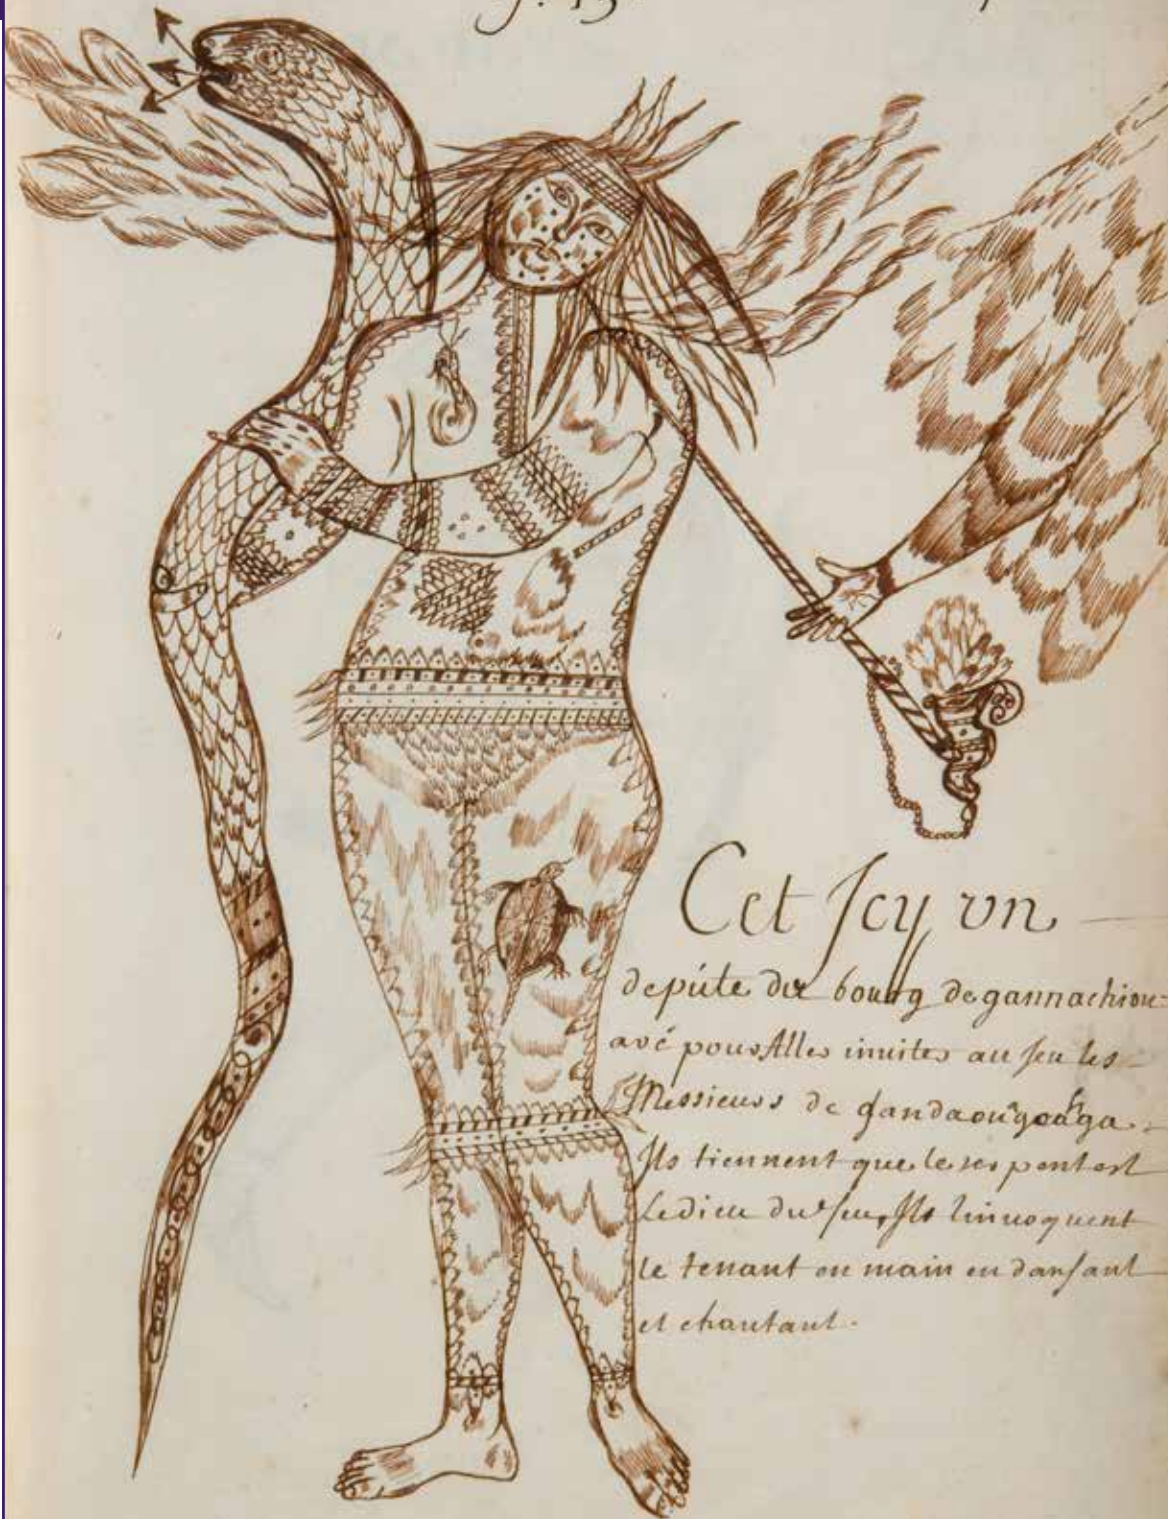 Cet Jcy vn
depúte du bourg de gannachiou=
avé pour Aller inuiter au jeu les
Messieurs de gandaouagoahga.
Jls tiennent que le serpent est
Le dieu du feu, Jls linuoquent
le tenant en main en dansant
et chantant.